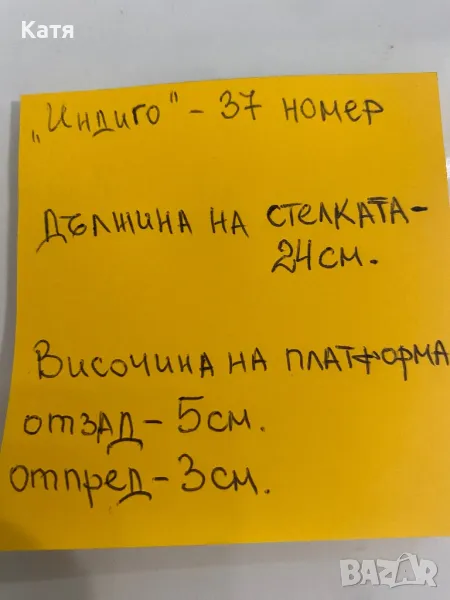 Катя
„Индиго" - 37 номер
Дължина на стелката-
24см.
Височина на платформа
отзад - 5см.
отпред - 3см.
BAZAR